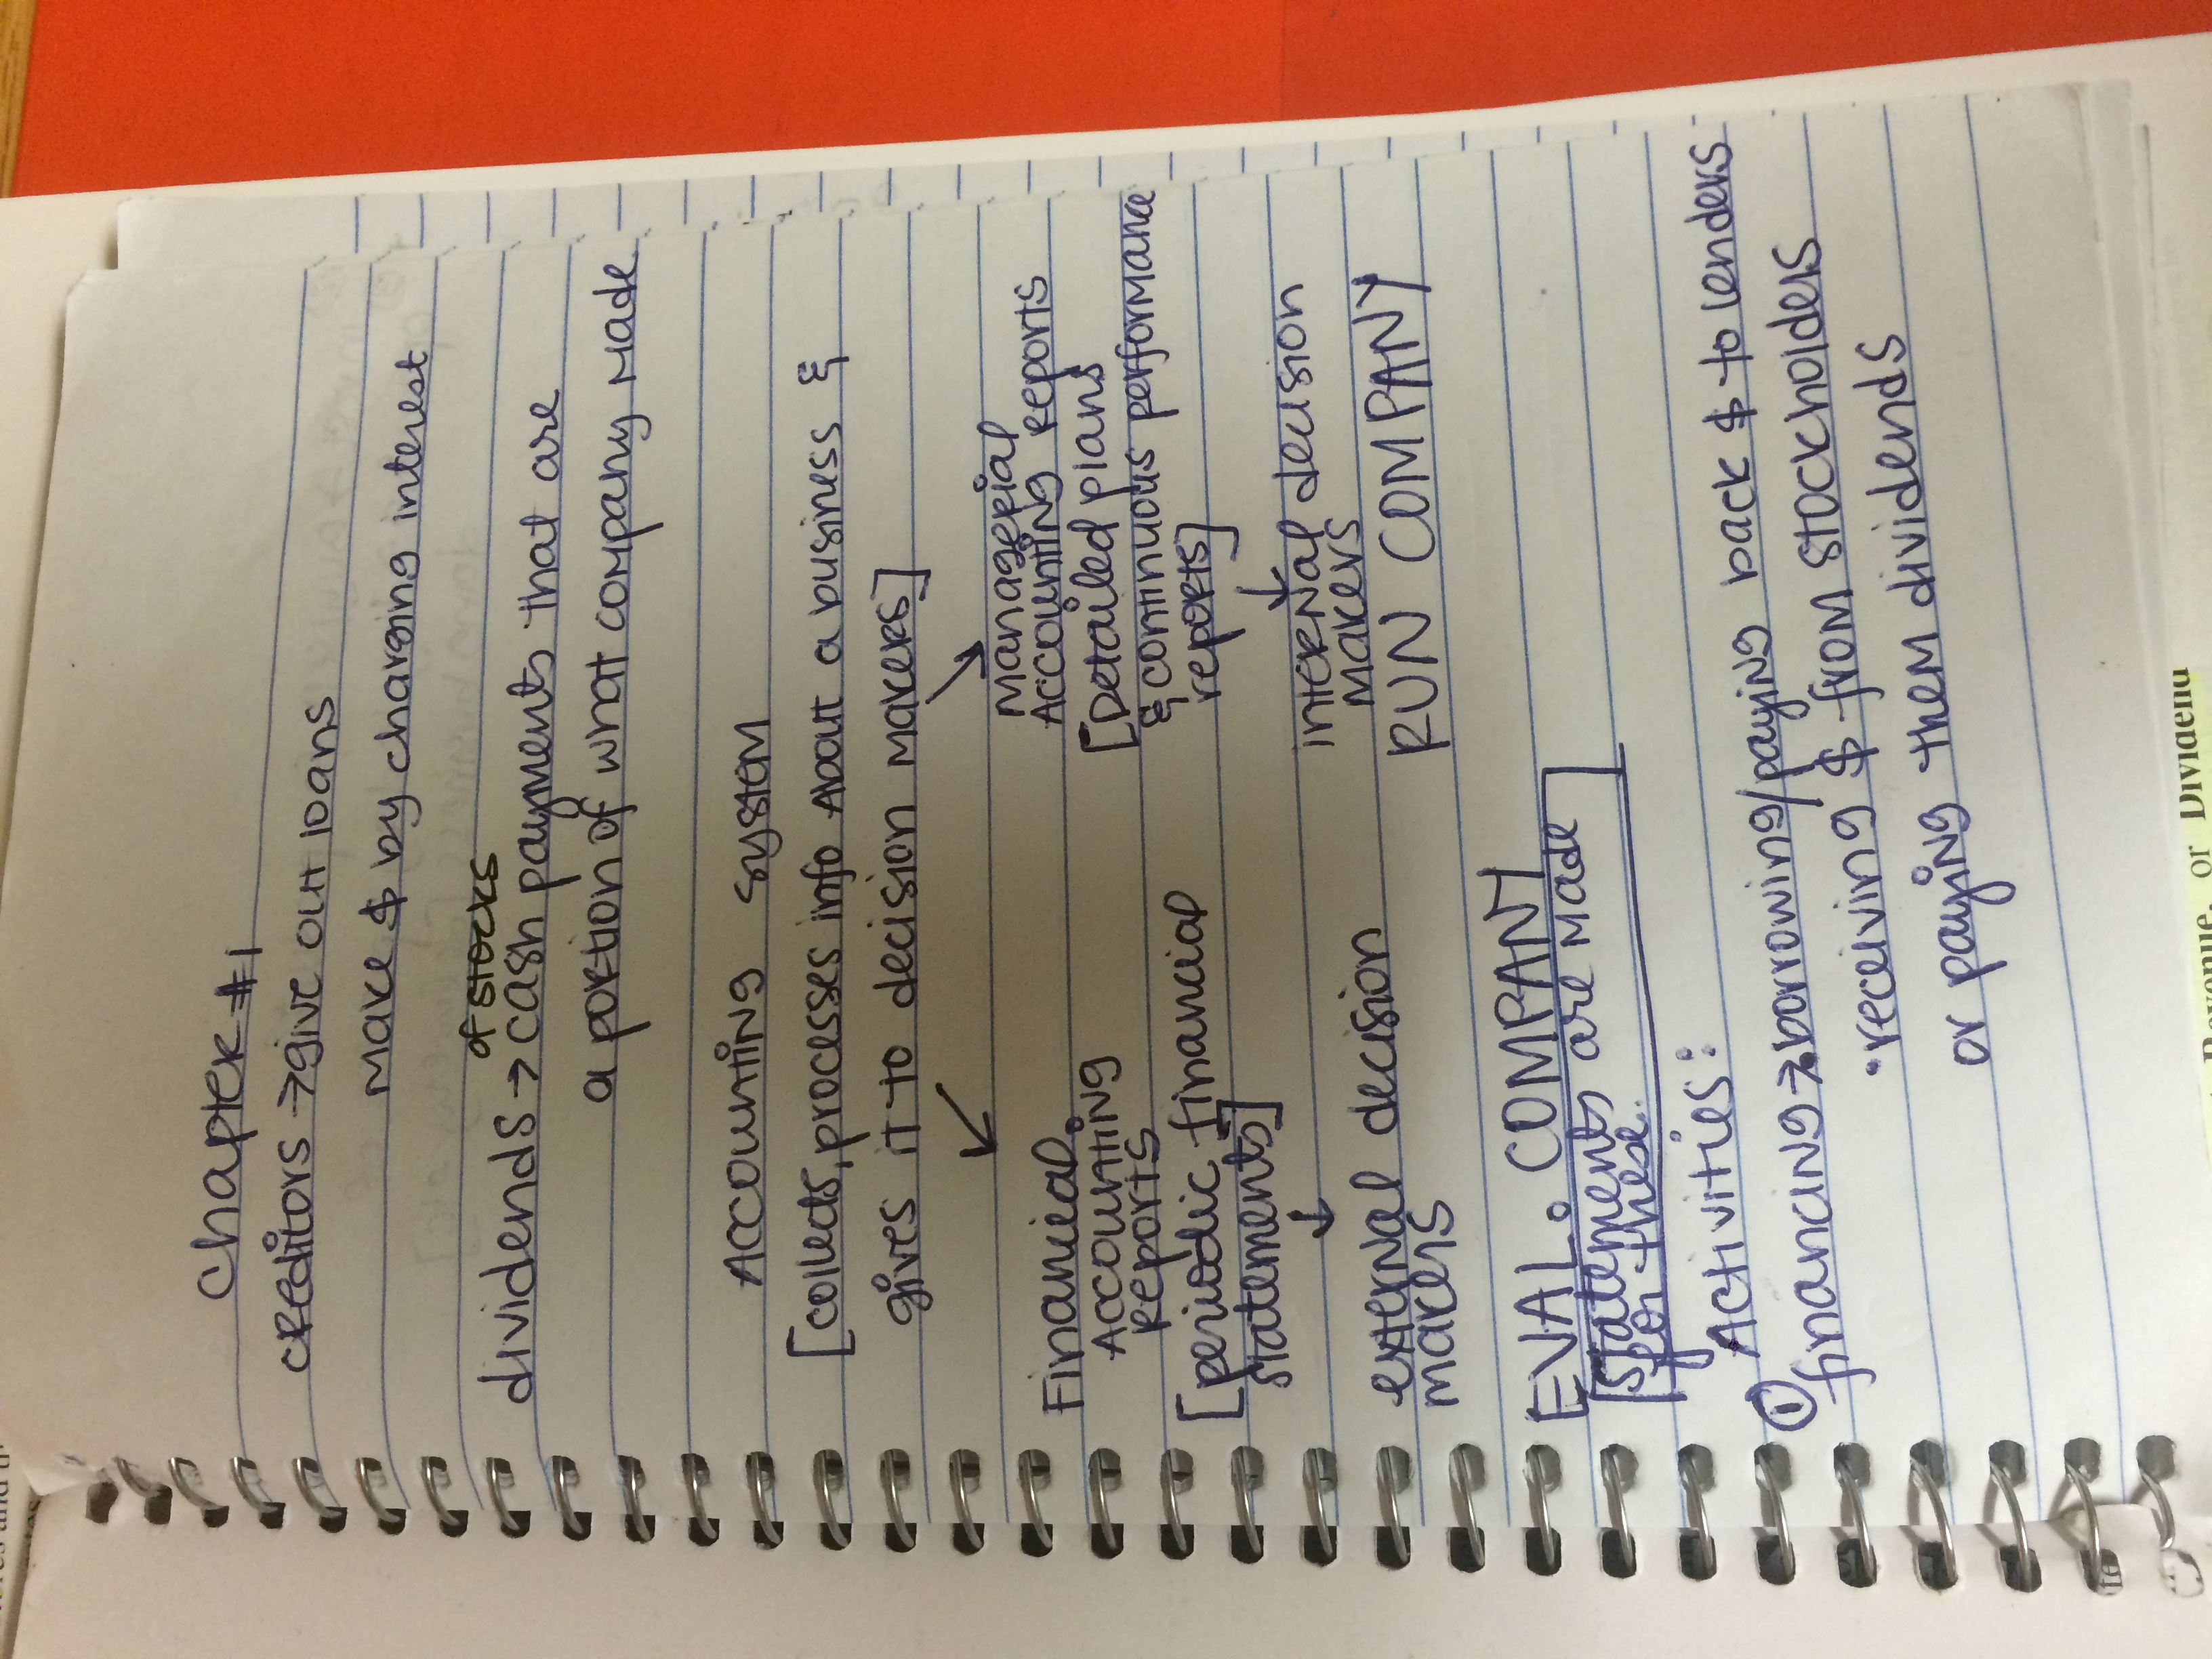 Chapter #1
creditors → give out loans
make $ by charging interest
of stocks
dividends → cash payments that are
a portion of what company made
Accounting system
[collects, processes info About a business &
gives it to decision makers]
↙ ↘
Financial
Accounting
Reports
[periodic financial
statements]
↓
external decision
makers
EVAL. COMPANY
[statements are made
for these.]
Managerial
Accounting Reports
[Detailed plans
& continuous performance
reports]
↓
internal decision
makers
RUN COMPANY
Activities:
① financing → • borrowing/paying back $ to lenders
• receiving $ from stockholders
or paying them dividends
Revenue, or Dividend